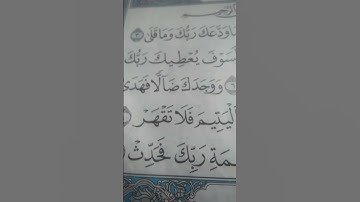 وَدَّعَكَ رَبُّكَ وَمَا قَلَىٰ
سَوْفَ يُعْطِيكَ رَبُّكَ
وَوَجَدَكَ ضَالًّا فَهَدَىٰ
الْيَتِيمَ فَلَا تَقْهَرْ
رَبِّكَ فَحَدِّثْ